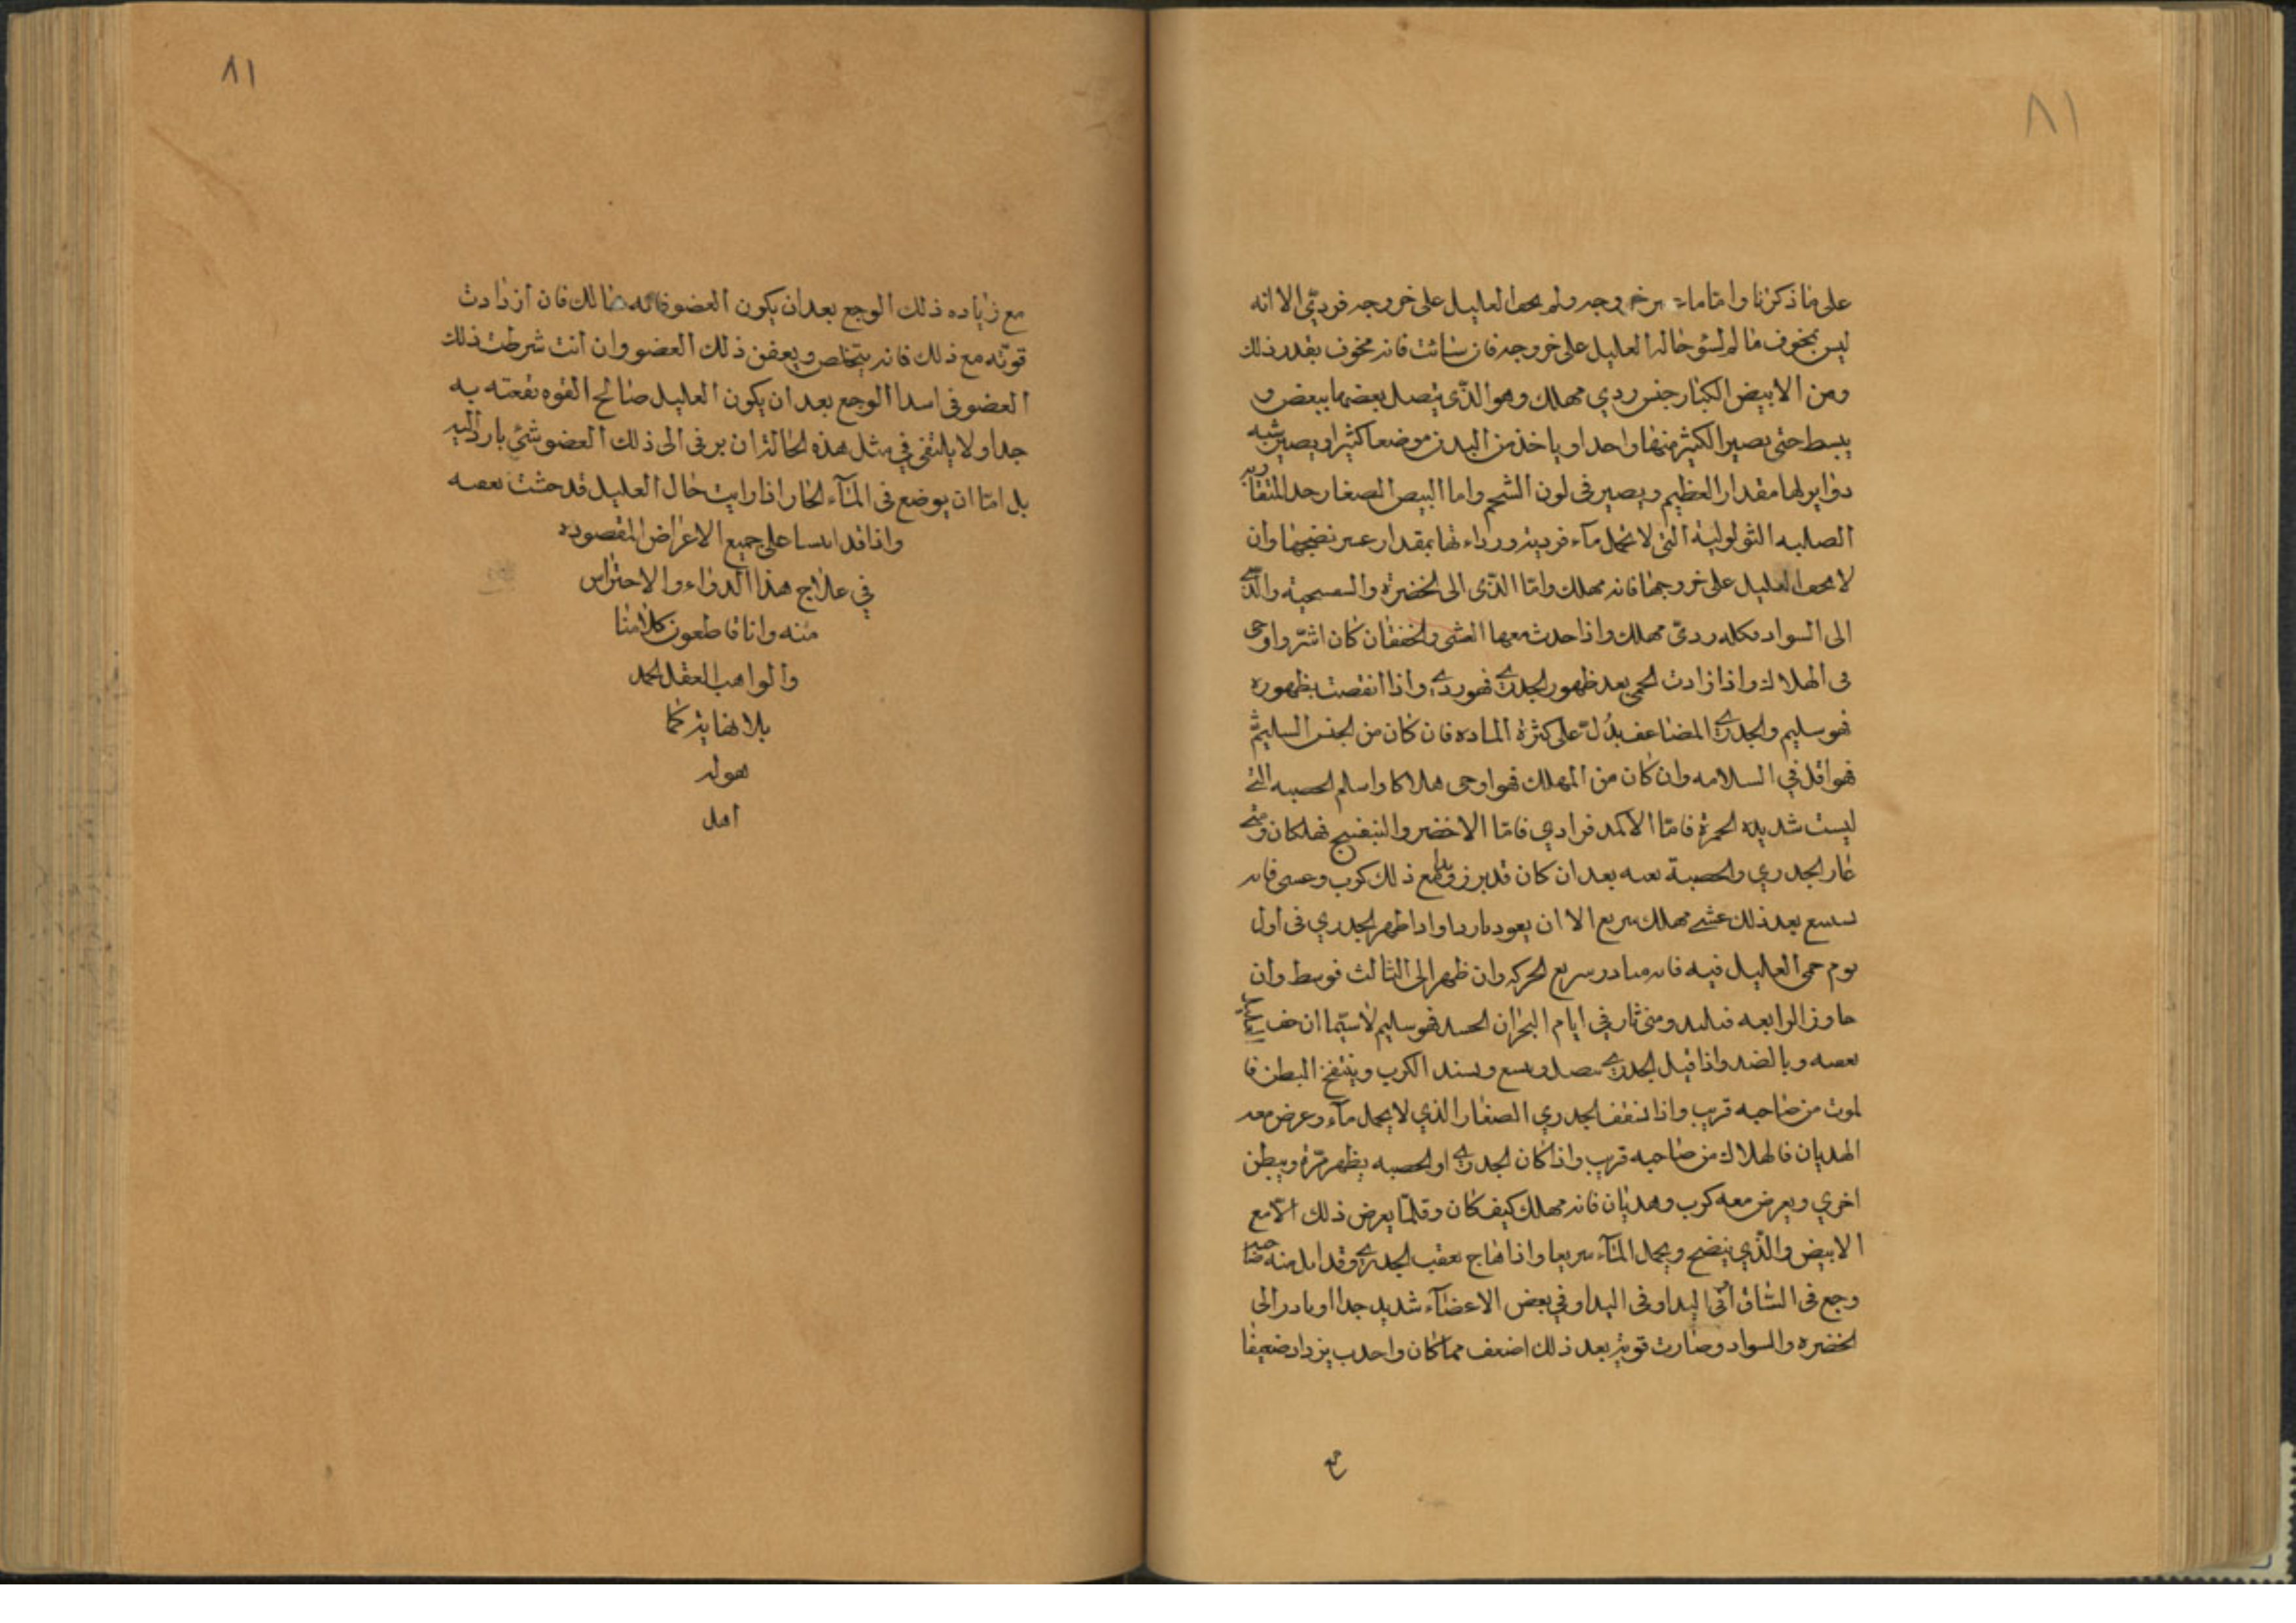 ٨١
على ما ذكرنا واما ما خروجه ولم العليل على خروجه فردئ الا انه
ليس بمخوف ما لم تسؤ حاله العليل على خروجه فان سائت فانه مخوف بقدر ذلك
ومن الابيض الكبار جنس ردي مهلك وهو الذى يتصل بعضها ببعض و
يبسط حتى يصير الكثير منها واحدا وياخذ من البدن موضعا كثيرا ويصير شبه
دواير لها مقدار العظيم ويصير فى لون الشحم واما البيض الصغار جدا المتقاربه
الصلبه الثولولية التى لا تحمل مآء فرديئة ورداءتها بمقدار عسر نضجها وان
لا العليل على خروجها فانه مهلك واما الذى الى الخضرة والبنفسجية والذى
الى السواد فكله ردئ مهلك واذا حدث معها الغشى والخفقان كان اشر واوحى
فى الهلاك واذا زادت الحمى بعد ظهور الجدري فهو ردي واذا انقصت بظهوره
فهو سليم والجدري المضاعف يدل على كثرة الماده فان كان من الجنس السليم
فهو اقل في السلامه وان كان من المهلك فهو اوحى هلاكا واسلم الحصبه التى
ليست شديده الحمرة فاما الاكمد فرادي فاما الاخضر والبنفسج فهلكان ومتى
غار الجدري والحصبة بعد ان كان قد برز وبدا مع ذلك كرب وغشى فانه
بعد ذلك غشى مهلك سريع الا ان يعود بارزا واذا ظهر الجدري فى اول
يوم حمى العليل فيه فانه مبادر سريع الحركه وان ظهر الى الثالث فوسط وان
جاوز الرابعه فبليد ومتى ثار في ايام البحران الجيد فهو سليم لاسيما ان خف العليل
وبالضد واذا قيل الجدري ويشتد الكرب وينتفخ البطن فا
لموت من صاحبه قريب واذا الجدري الصغار الذي لا يحمل مآء وعرض معه
الهذيان فالهلاك من صاحبه قريب واذا كان الجدري او الحصبه يظهر مرة ويبطن
اخري ويعرض معه كرب وهذيان فانه مهلك كيف كان وقلما يعرض ذلك الا مع
الابيض والذي ينضج ويحمل المآء سريعا واذا هاج بعقب الجدري وقد ابل منه صاحبه
وجع فى الساق او فى اليد او في بعض الاعضآء شديد جدا او بادر الى
الخضره والسواد وصارت قوته بعد ذلك اضعف مما كان واحدب يزداد ضعيفا
مع
٨١
مع زياده ذلك الوجع بعد ان يكون العضو فانه هالك فان ازدادت
قوته مع ذلك فانه يتخلص ويعفن ذلك العضو وان انت شرطت ذلك
العضو فى ابتدا الوجع بعد ان يكون العليل صالح القوه نفعته به
جدا ولا في مثل هذه الحالة ان برفى الى ذلك العضو شئ بارد البته
بل اما ان يوضع فى المآء الحار اذا رايت حال العليل قد
واذ قد على جميع الاغراض المقصوده
في علاج هذا الداء والاحتراس
منه وانا قاطعون كلامنا
والواهب العقل الحمد
بلا نهاية كما
هو له
اهل